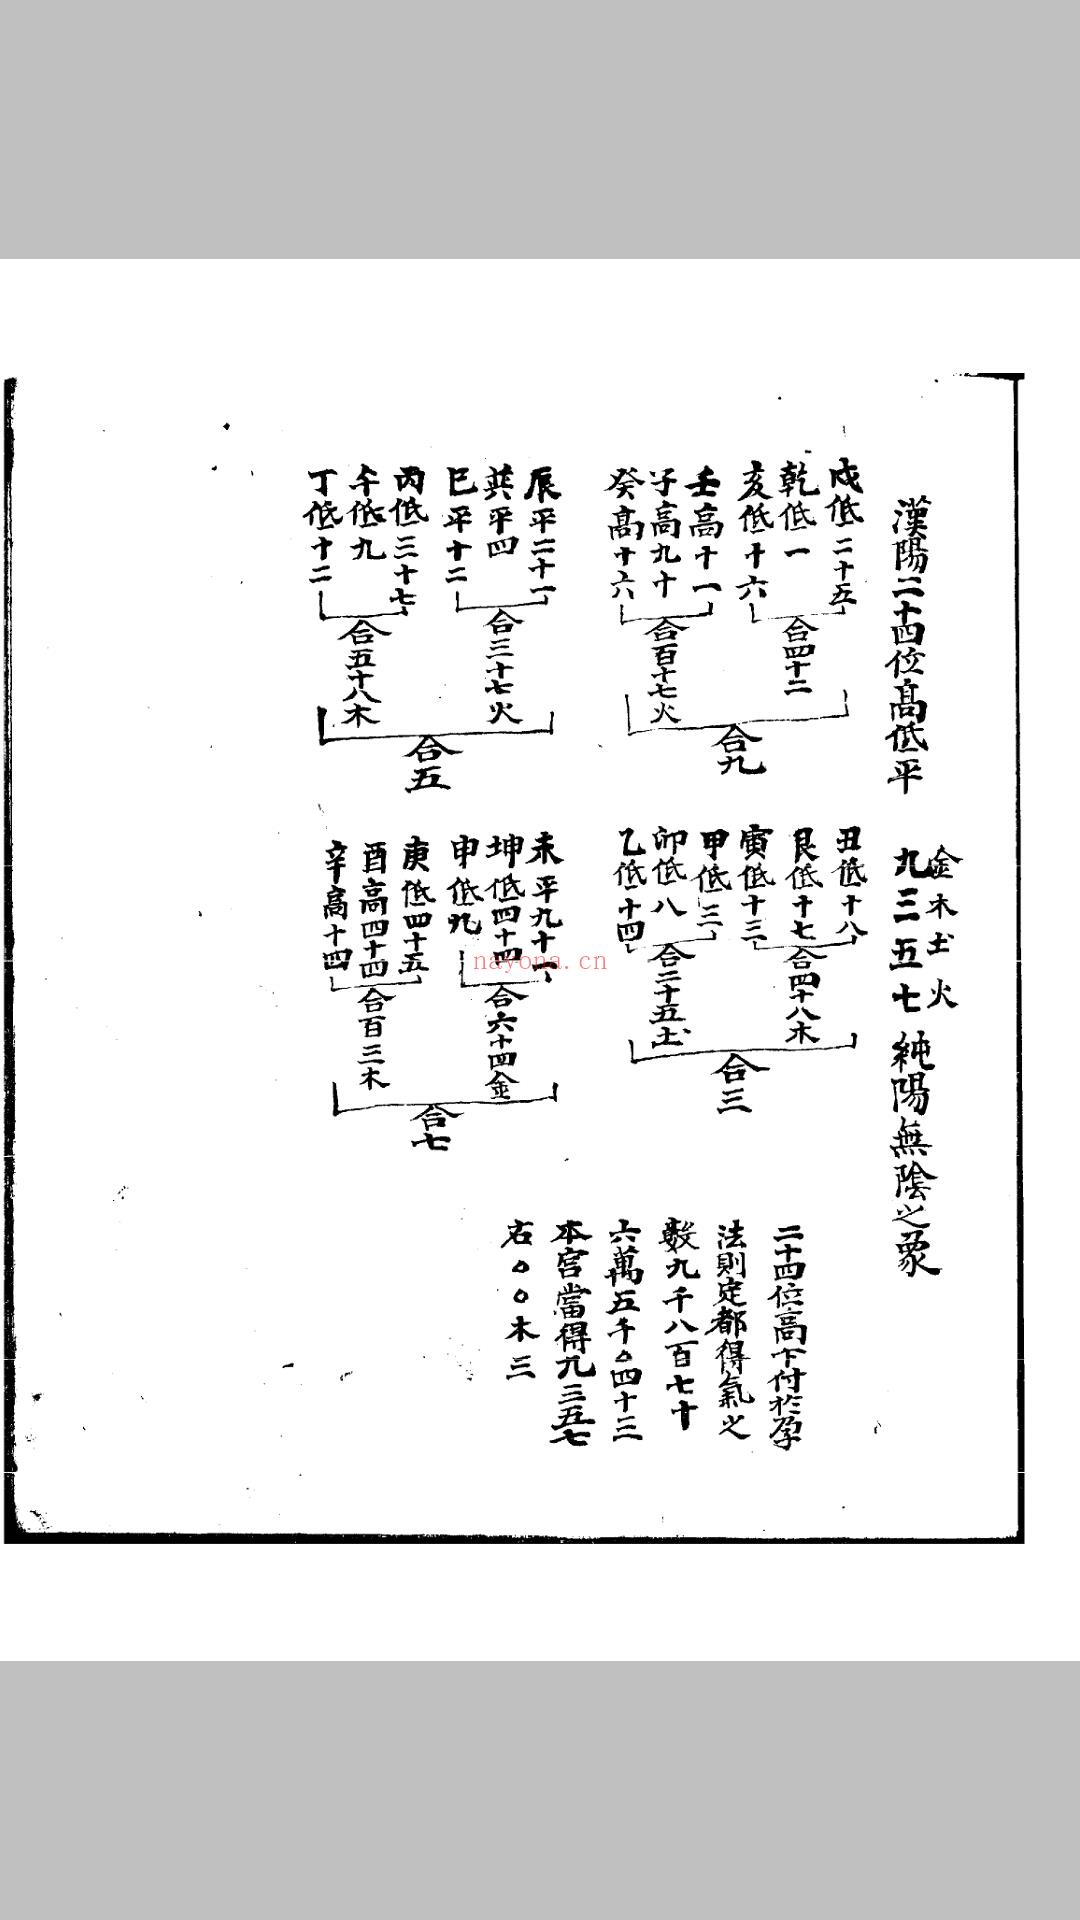 漢陽二十四位高低平
金木土火
九三五七純陽無陰之象
戌低二十五
乾低一
亥低十六
合四十二
壬高十一
子高九十
癸高十六
合百十七火
合九
丑低十八
艮低十七
寅低十三
合四十八木
甲低三
卯低八
乙低十四
合二十五土
合三
辰平二十一
巽平四
巳平十二
合三十七火
丙低三十七
午低九
丁低十二
合五十八木
合五
未平九十一
坤低四十四
申低九
合六十四金
庚低四十五
酉高四十四
辛高十四
合百三木
合七
二十四位高下付於孕
法則定都得氣之
數九千八百七十
六萬五千〇四十三
本宮當得九三五七
右〇〇木三
nayona.cn